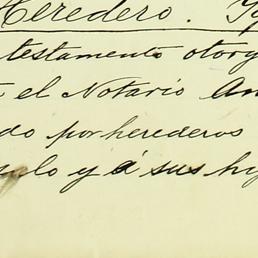 Heredero.
testamento otorg
el Notario An
do por herederos
ulo y á sus hij